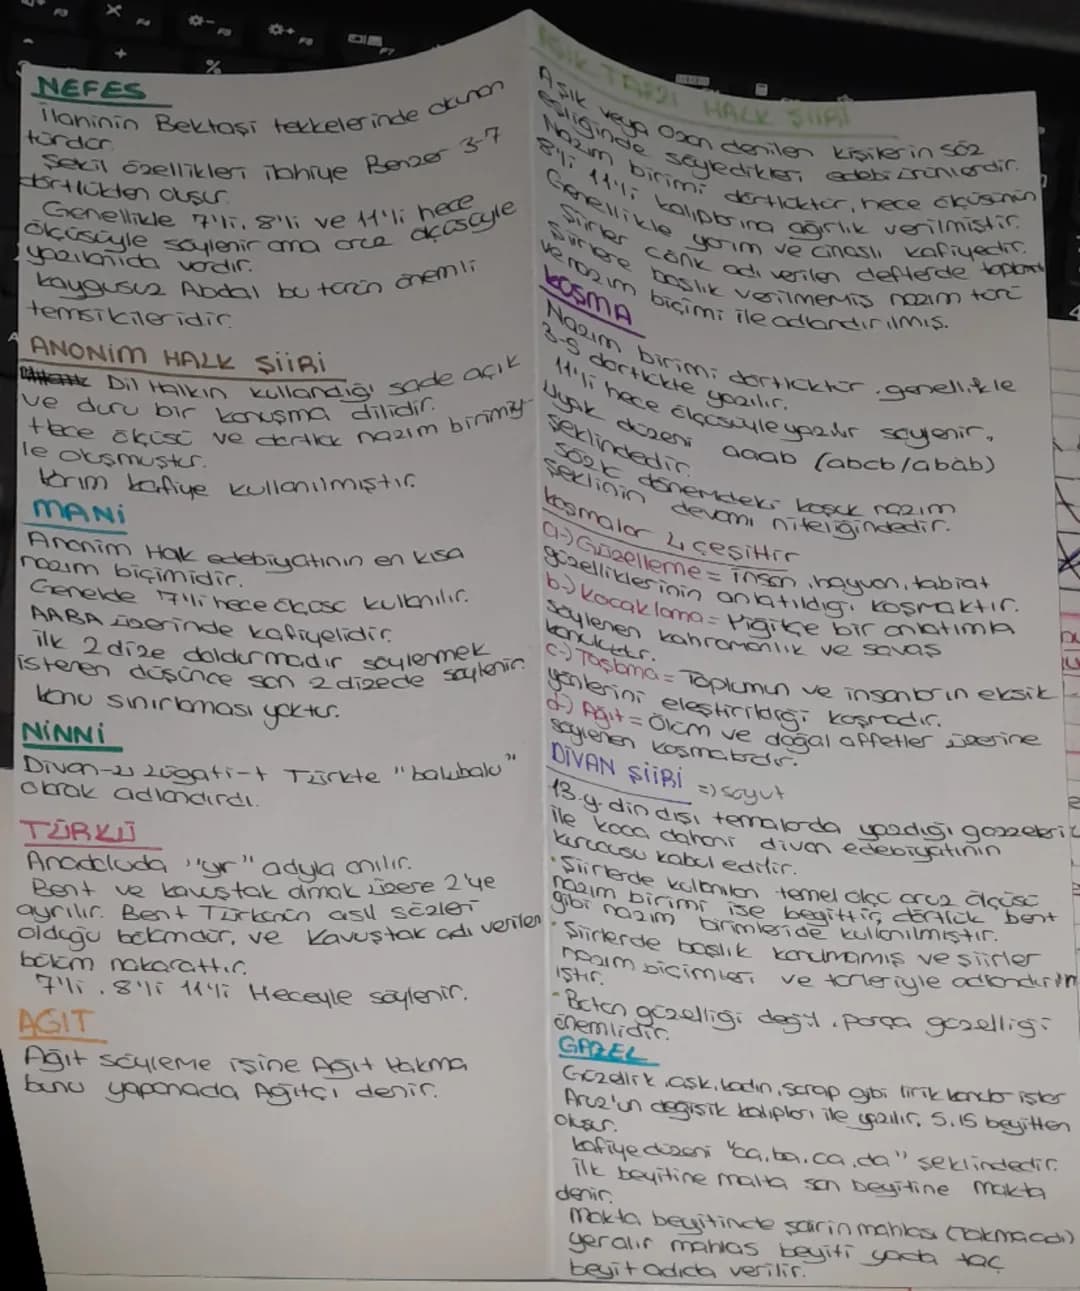 NEFES
İlahinin Bektaşi tekkelerinde okunan
türdür
Şekil özellikleri ilahiye Benzer 3-7
dörtlükten oluşur.
Genellikle 7'li, 8'li ve 11'li hece
ölçüsüyle söylenir ama aruz ölçüsüyle
yazılanıda vardır.
Kaygusuz Abdal bu türün önemli
temsilcileridir.
ANONİM HALK ŞİİRİ
Dil Halkın kullandığı sade açık
ve duru bir konuşma dilidir.
Hece ölçüsü ve dörtlük nazım birimiy-
le oluşmuştur.
Yarım kafiye kullanılmıştır.
MANİ
Anonim Halk edebiyatının en kısa
nazım biçimidir.
Genelde 7'li hece ölçüsü kullanılır.
AABA üzerinde kafiyelidir.
İlk 2 dize doldurmadır söylenmek
istenen düşünce son 2 dizede söylenir.
Konu sınırlaması yoktur.
NİNNİ
Divan-ı Lügati-t Türkte "balubalu"
olarak adlandırdı.
TÜRKÜ
Anadoluda "yır" adıyla anılır.
Bent ve kavuştak olmak üzere 2'ye
ayrılır. Bent Türkünün asıl sözleri
olduğu bölümdür, ve Kavuştak adı verilen
bölüm nakarattır.
7'li, 8'li 11'li Heceyle söylenir.
AGIT
Ağıt söyleme işine Ağıt Yakma
bunu yapanada Ağıtçı denir.
AŞIK TARZI HALK ŞİİRİ
Aşık veya Ozan denilen kişilerin söz
eşliğinde söyledikleri edebi ürünlerdir.
Nazım birimi dörtlüktür, hece ölçüsünün
8'li 11'li kalıplarına ağırlık verilmiştir.
Genellikle yarım ve cinaslı kafiyedir.
Şiirler cönk adı verilen defterde toplanır
Şiirlere başlık verilmemiş nazım türü
ve nazım biçimi ile adlandırılmış.
KOŞMA
Nazım birimi dörtlüktür. genellikle
3-5 dörtlükte yazılır.
11'li hece ölçüsüyle yazılır söylenir.
Uyak düzeni aaab (abcb/abab)
şeklindedir.
Sözlü dönemdeki koşuk nazım
şeklinin devamı niteliğindedir.
Koşmalar 4 çeşittir
a-) Güzelleme = insan, hayvan, tabiat
güzelliklerinin anlatıldığı koşmaktır.
b-) Koçaklama = Yiğitçe bir anlatımla
söylenen kahramanlık ve savaş
konuludur.
c-) Taşlama = Toplumun ve insanların eksik
yönlerini eleştirildiği koşmadır.
d-) Ağıt = Ölüm ve doğal affetler üzerine
söylenen koşmalardır.
DİVAN ŞİİRİ => soyut
13.y. din dışı temalarda yazdığı gazzelleri
ile koca dahani divan edebiyatının
kurucusu kabul edilir.
• Şiirlerde kullanılan temel ölçü aruz ölçüsü
nazım birimi ise beyittir, dörtlük bent
gibi nazım birimleride kullanılmıştır.
• Şiirlerde başlık konulmamış ve şiirler
nazım biçimleri ve türleriyle adlandırılm
ıştır.
• Bütün güzelliği değil, parça güzelliği
önemlidir.
GAZEL
Güzellik, aşk, kadın, şarap gibi lirik konular işler
Aruz'un değişik kalıpları ile yazılır, 5.15 beyitten
oluşur.
Kafiye düzeni "aa, ba, ca, da" şeklindedir.
İlk beyitine malta son beyitine makta
denir.
Makta beyitinde şairin mahlası (Takma adı)
yer alır mahlas beyiti yada taç
beyit adıda verilir.